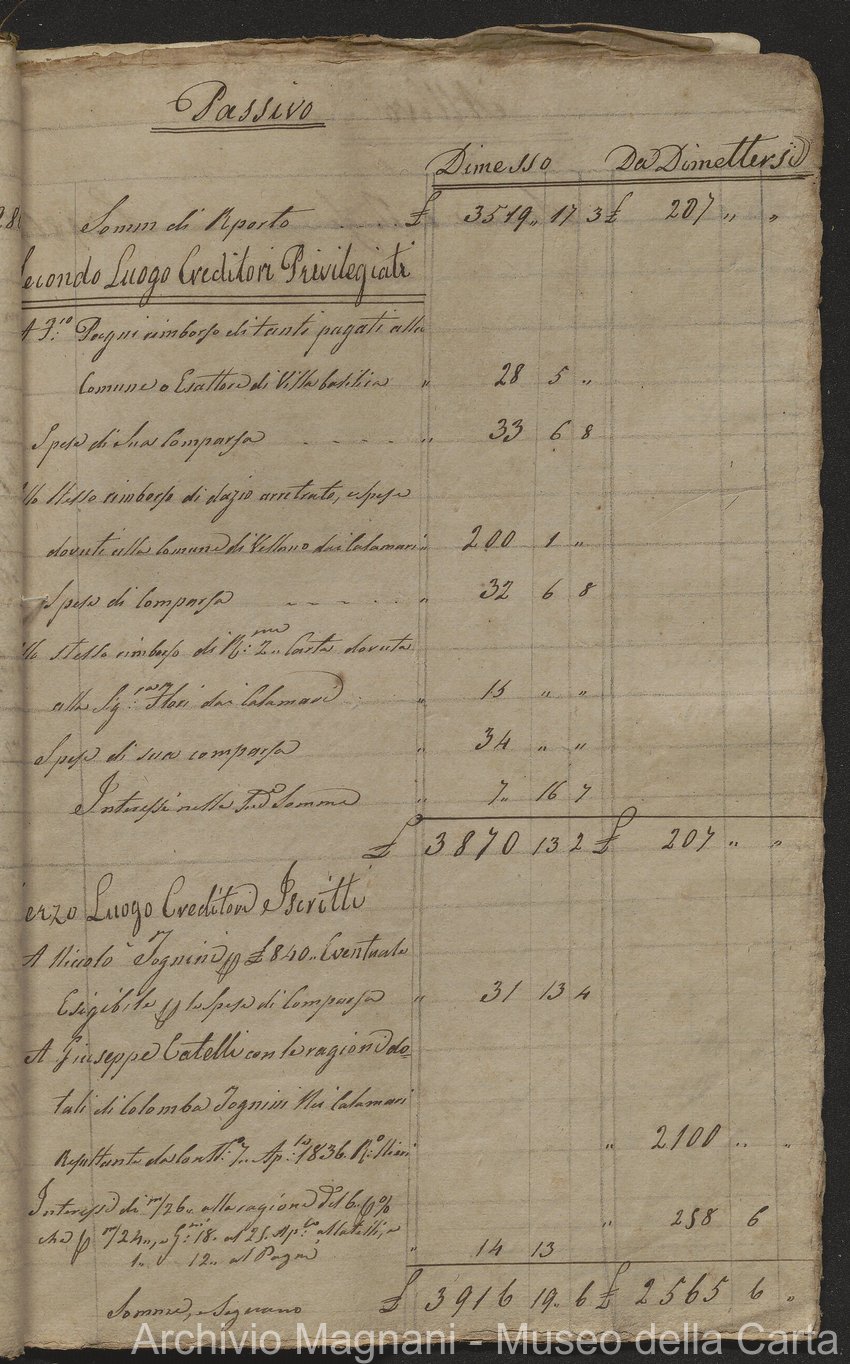 Passivo
Dimesso Da Dimettersi
Somm di Rporto £ 3519,, 17 3 £ 207 ,, ,,
econdo Luogo Creditori Privilegiati
Pagni rimborso di tanti pagati alla
Comune o Esattore di Villabasilica ,, 28 5 ,,
Spese di Sua Comparsa ,, 33 6 8
llo stesso rimborso di dazio arretrato, e spese
dovuti alla Comune di Vellano dai Calamari ,, 200 1 ,,
Spese di Comparsa ,, 32 6 8
llo stesso rimborso di Carta dovuta
alla Sig:ra Flori dai Calamari ,, 15 ,, ,,
Spese di sua comparsa ,, 34 ,, ,,
Interessi nelle Sud.e Somme ,, 7,, 16 7
£ 3870 13 2 £ 207 ,, ,,
erzo Luogo Creditori Iscritti
A Niccolò Tognini £ 840,, Eventuale
Esigibile le Spese di Comparsa ,, 31 13 4
A Giuseppe Catelli con le ragioni do=
tali di Colomba Tognini Nei Calamari
Resultante da 7,, Ap: 1836. ,, 2100 ,, ,,
Interessi di m/26,, alla ragione del 6. p %
che p m/24,, e G:ni 18. al 25. Ap:le al Catelli, e ,, 258 6
1,, 12,, al Pagni ,, 14 13
Somma, e Seguono £ 3916 19,, 6 £ 2565 6 ,,
Archivio Magnani - Museo della Carta